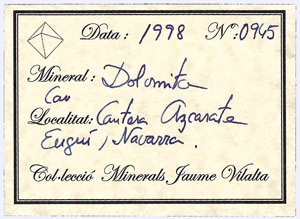 Data: 1998 Nº: 0945
Mineral: Dolomita
Localitat: Cantera Azcarate
Eugui, Navarra.
Col·lecció Minerals Jaume Vilalta